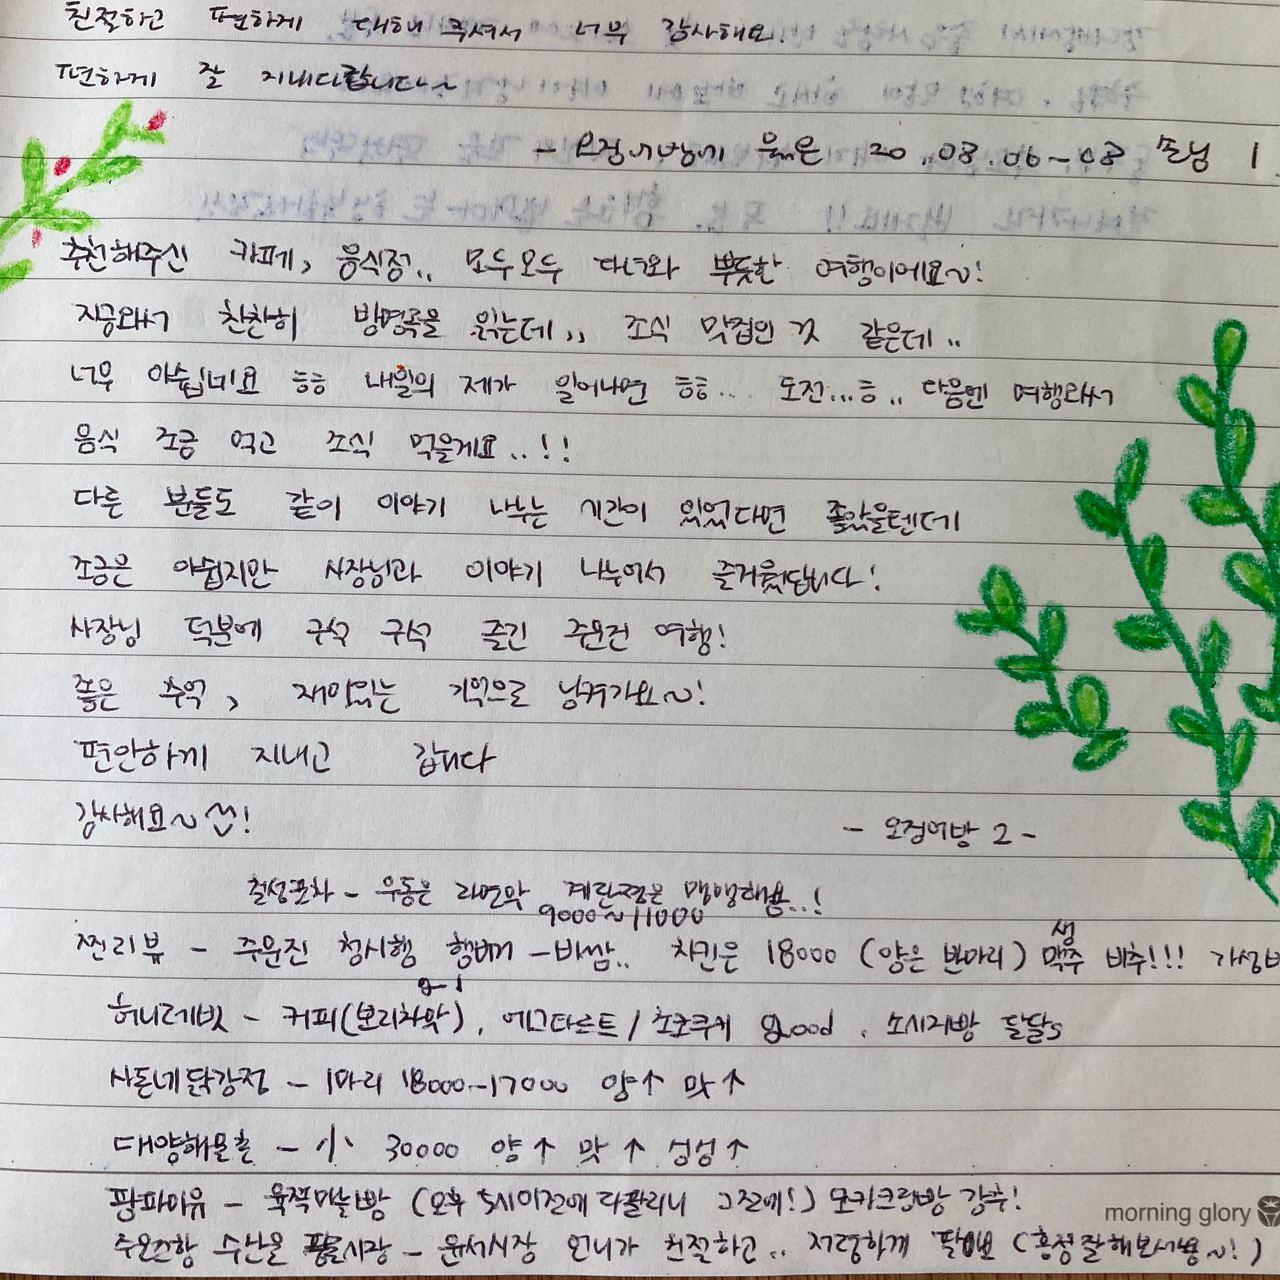 친절하고 편하게 대해 주셔서 너무 감사해요!
편하게 잘 지내다갑니다~
- 오징어방에 묵은 20.08.06~08 손님 1.
추천해주신 카페, 음식점.. 모두모두 다녀와 뿌듯한 여행이에요~!
지금와서 찬찬히 방명록을 읽는데,, 조식 맛집인 것 같은데..
너무 아쉽네요 흐흐 내일의 제가 일어나면 흐흐... 도전...흐.. 다음엔 여행와서
음식 조금 먹고 조식 먹을게요..!!
다른 분들도 같이 이야기 나누는 시간이 있었다면 좋았을텐데
조금은 아쉽지만 사장님과 이야기 나누어서 즐거웠답니다!
사장님 덕분에 구석 구석 즐긴 주문진 여행!
좋은 추억, 재미있는 기억으로 남겨가요~!
편안하게 지내고 갑니다
감사해요~!
- 오징어방 2 -
철성포차 - 우동은 라면맛 계란찜은 맹맹해용..!
9000~11000
찐리뷰 - 주문진 청시행 행버거 - 비쌈.. 치킨은 18000 (양은 반마리) 생맥주 비추!!! 가성비
허니레빗 - 커피(보리차맛), 에그타르트/초코쿠키 good. 소시지빵 달달s
사돈네 닭강정 - 1마리 18000~17000 양↑ 맛↑
대양해물촌 - 小 30000 양↑ 맛↑ 싱싱↑
팡파미유 - 육쪽마늘빵 (오후 5시이전에 다팔리니 그전에!) 모카크림빵 강추!
주문진항 수산물 풍물시장 - 윤서시장 언니가 친절하고.. 저렴하게 (흥정잘해보세용~!)
morning glory